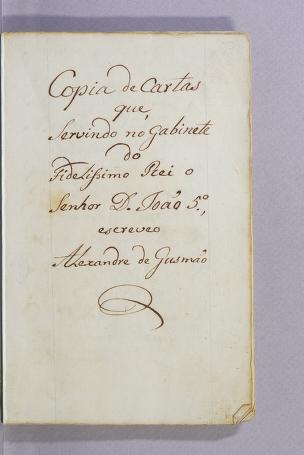 Copia de Cartas
que,
Servindo no Gabinete
do
Fidelissimo Rei o
Senhor D. João 5º,
escreveo
Alexandre de Gusmão